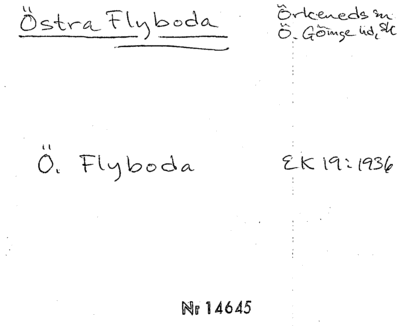 Östra Flyboda
Örkeneds sn
Ö. Göinge hd, Sk
Ö. Flyboda
EK 19:1936
Nr 14645